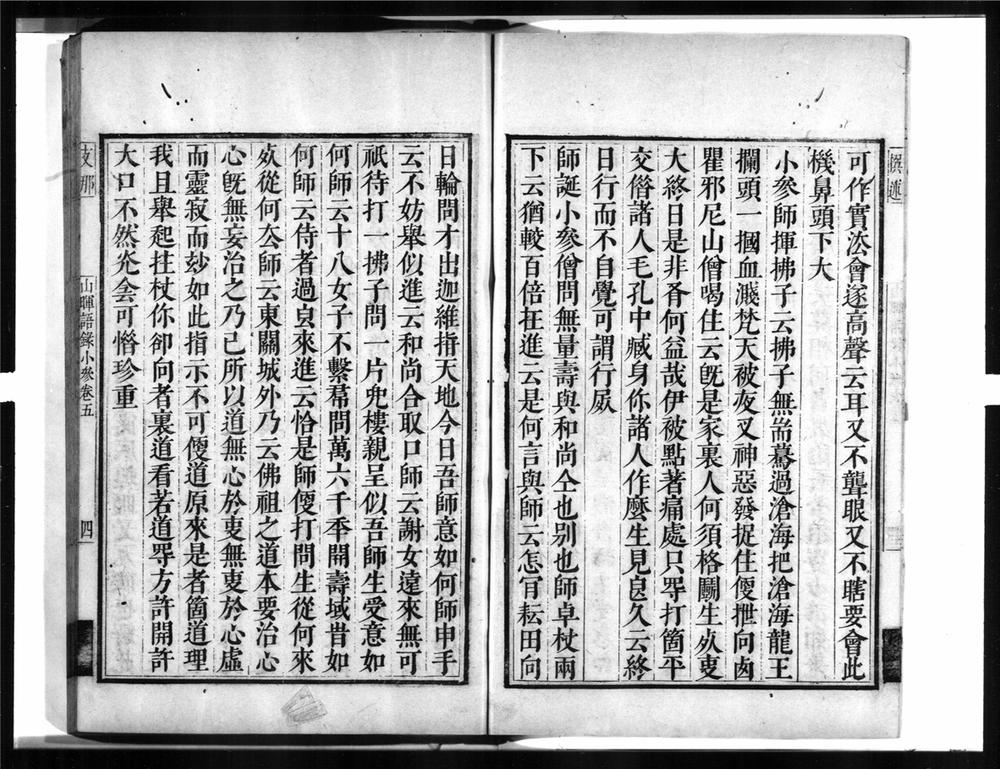 可作實㳒會遂高聲云耳又不聾眼又不瞎要會此
機鼻頭下大
小叅師揮拂子云拂子無耑驀過滄海把滄海龍王
攔頭一摑血濺梵天被夜叉神惡發捉住便拽向
瞿邪尼山僧喝住云旣是家裏人何須格鬬生㱔叓
大終日是非何益哉伊被點著痛處只㝵打箇平
交俻諸人毛孔中臧身你諸人作麼生見良久云終
日行而不自覺可謂行
師誕小叅僧問無量壽與和尚仝也别也師卓杖兩
下云猶較百倍在進云是何言與師云怎肎耘田向
日輪問才出迦維指天地今日吾師意如何師申手
云不妨舉似進云和尚合取口師云謝女遠來無可
祇待打一拂子問一片兜樓親呈似吾師生受意如
何師云十八女子不繫帬問萬六千季開壽域昔如
何師云侍者過㒵來進云恰是師便打問生從何來
㱔從何厺師云東關城外乃云佛祖之道本要治心
心旣無妄治之乃已所以道無心於叓無叓於心虛
而靈寂而玅如此指示不可便道原來是者箇道理
我且舉起拄杖你卻向者裏道看若道㝵方許開許
大口不然灮侌可惜珍重
支那
山暉語錄小叅卷五
四
撰述